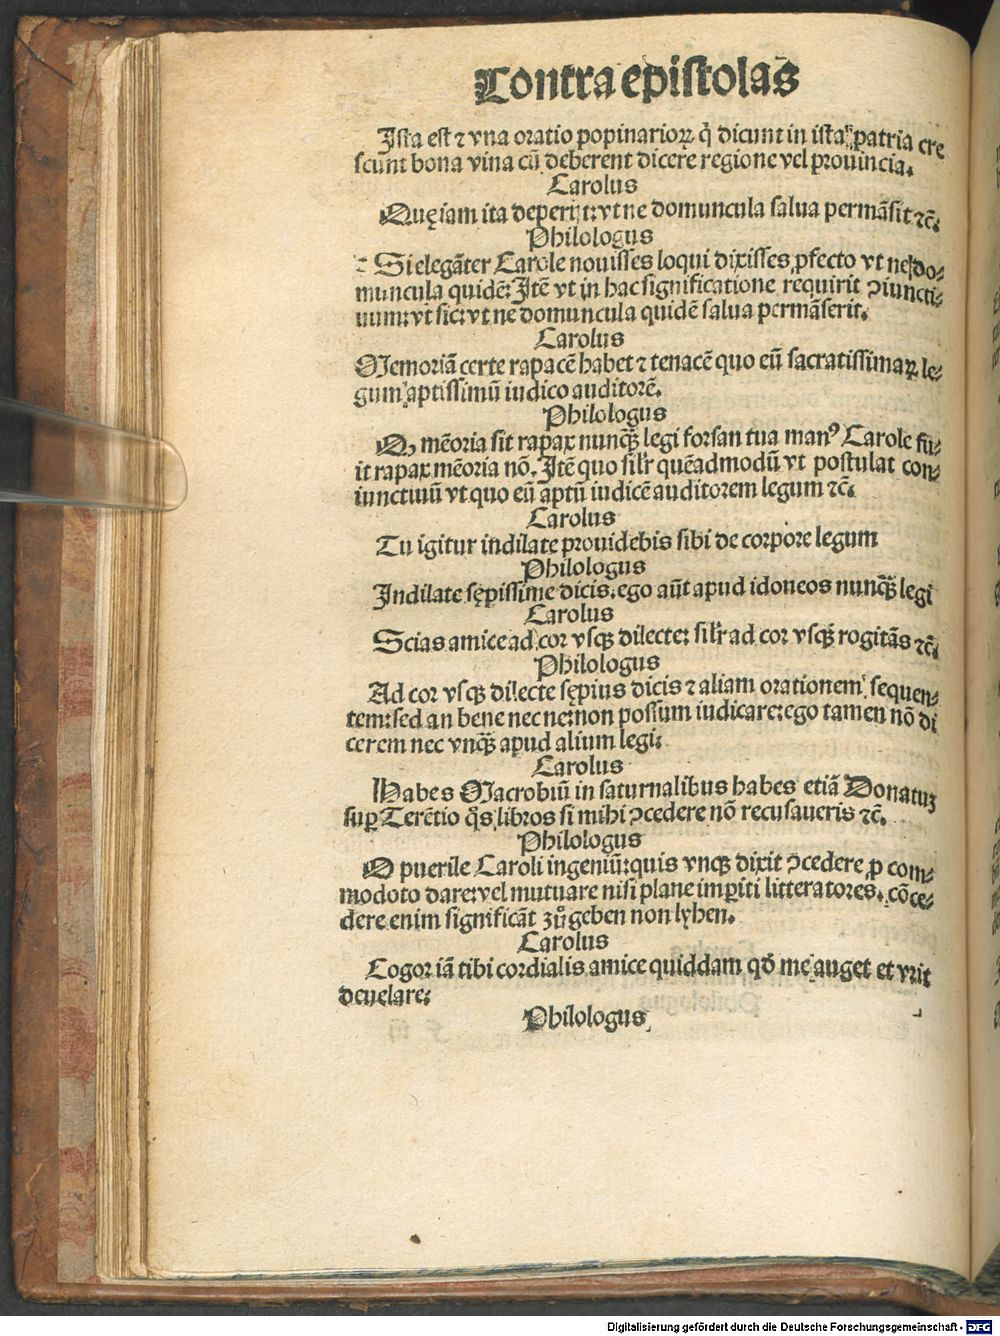 Contra epistolas
Ista est ⁊ vna oratio popinarioꝝ q̄ dicunt in ista patria cre
scunt bona vina cū deberent dicere regione vel prouincia.
Carolus
Quę iam ita deperijt: vt ne domuncula salua permāsit ⁊c̄.
Philologus
Si elegāter Carole nouisses loqui dixisses ꝓfecto vt ne do⸗
muncula quidē: Itē vt in hac significatione requirit ꝯiuncti⸗
uum: vt sic: vt ne domuncula quidē salua permāserit.
Carolus
Memoriā certe rapacē habet ⁊ tenacē quo eū sacratissimaꝝ le⸗
gum aptissimū iudico auditorē.
Philologus
Q, mēoria sit rapax nunqȝ legi forsan tua manꝰ Carole fu⸗
it rapax mēoria nō. Itē quo silr̄ quēadmodū vt postulat con⸗
iunctiuū vt quo eū aptū iudicē auditorem legum ⁊c̄.
Carolus
Tu igitur indilate prouidebis sibi de corpore legum
Philologus
Indilate sępissime dicis. ego aūt apud idoneos nunqȝ legi
Carolus
Scias amice ad cor vsqȝ dilecte: silr̄ ad cor vsqȝ rogitās ⁊c̄.
Philologus
Ad cor vsqȝ dilecte sępius dicis ⁊ aliam orationem sequen⸗
tem: sed an bene nec ne: non possum iudicare: ego tamen nō di
cerem nec vnqȝ apud alium legi:
Carolus
Habes Macrobiū in saturnalibus habes etiā Donatuȝ
suꝑ Terētio q̄s libros si mihi ꝯcedere nō recusaueris ⁊c̄.
Philologus
O puerile Caroli ingeniū: quis vnqȝ dixit ꝯcedere ꝓ com⸗
modoto dare: vel mutuare nisi plane imꝑiti litteratores. cōce⸗
dere enim significāt zů geben non lyhen.
Carolus
Cogor iā tibi cordialis amice quiddam qd̄ me auget et vrit
deuelare:
Philologus
Digitalisierung gefördert durch die Deutsche Forschungsgemeinschaft - DFG